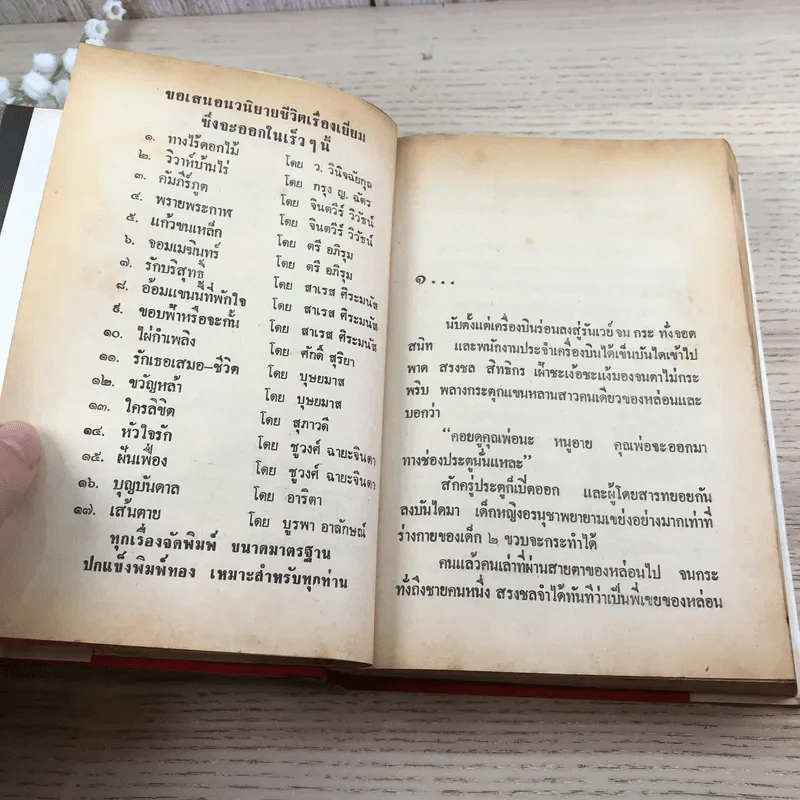 ขอเสนอนวนิยายชีวิตเรื่องเยี่ยม
ซึ่งจะออกในเร็วๆ นี้
๑. ทางไร้ดอกไม้ โดย ว. วินิจฉัยกุล
๒. วิวาห์บ้านไร่ โดย กรุง ญ. ฉัตร
๓. คัมภีร์ภูต โดย จินตวีร์ วิวัธน์
๔. พรายพระกาฬ โดย จินตวีร์ วิวัธน์
๕. แก้วขนเหล็ก โดย ตรี อภิรุม
๖. จอมเมฆินทร์ โดย ตรี อภิรุม
๗. รักบริสุทธิ์ โดย สาเรส ศิระมนัส
๘. อ้อมแขนนี้ที่พักใจ โดย สาเรส ศิระมนัส
๙. ขอบฟ้าหรือจะกั้น โดย สาเรส ศิระมนัส
๑๐. ไผ่กำเพลิง โดย ศักดิ์ สุริยา
๑๑. รักเธอเสมอ–ชีวิต โดย บุษยมาส
๑๒. ขวัญหล้า โดย บุษยมาส
๑๓. ใครลิขิต โดย สุภาวดี
๑๔. หัวใจรัก โดย ชูวงศ์ ฉายะจินดา
๑๕. ฝันเฟื่อง โดย ชูวงศ์ ฉายะจินดา
๑๖. บุญบันดาล โดย อาริตา
๑๗. เส้นตาย โดย บูรพา อาลักษณ์
ทุกเรื่องจัดพิมพ์ ขนาดมาตรฐาน
ปกแข็งพิมพ์ทอง เหมาะสำหรับทุกท่าน
๑...
นับตั้งแต่เครื่องบินร่อนลงสู่รันเวย์ จน กระ ทั่งจอด
สนิท และพนักงานประจำเครื่องบินได้เข็นบันไดเข้าไป
พาด สรงชล สิทธิกร เฝ้าชะเง้อชะแง้มองจนตาไม่กระ
พริบ พลางกระตุกแขนหลานสาวคนเดียวของหล่อนและ
บอกว่า
“คอยดูคุณพ่อนะ หนูอาย คุณพ่อจะออกมา
ทางช่องประตูนั่นแหละ”
สักครู่ประตูก็เปิดออก และผู้โดยสารทยอยกัน
ลงบันไดมา เด็กหญิงอรนุชาพยายามเขย่งอย่างมากเท่าที่
ร่างกายของเด็ก ๒ ขวบจะกระทำได้
คนแล้วคนเล่าที่ผ่านสายตาของหล่อนไป จนกระ
ทั่งถึงชายคนหนึ่ง สรงชลจำได้ทันทีว่าเป็นพี่เขยของหล่อน